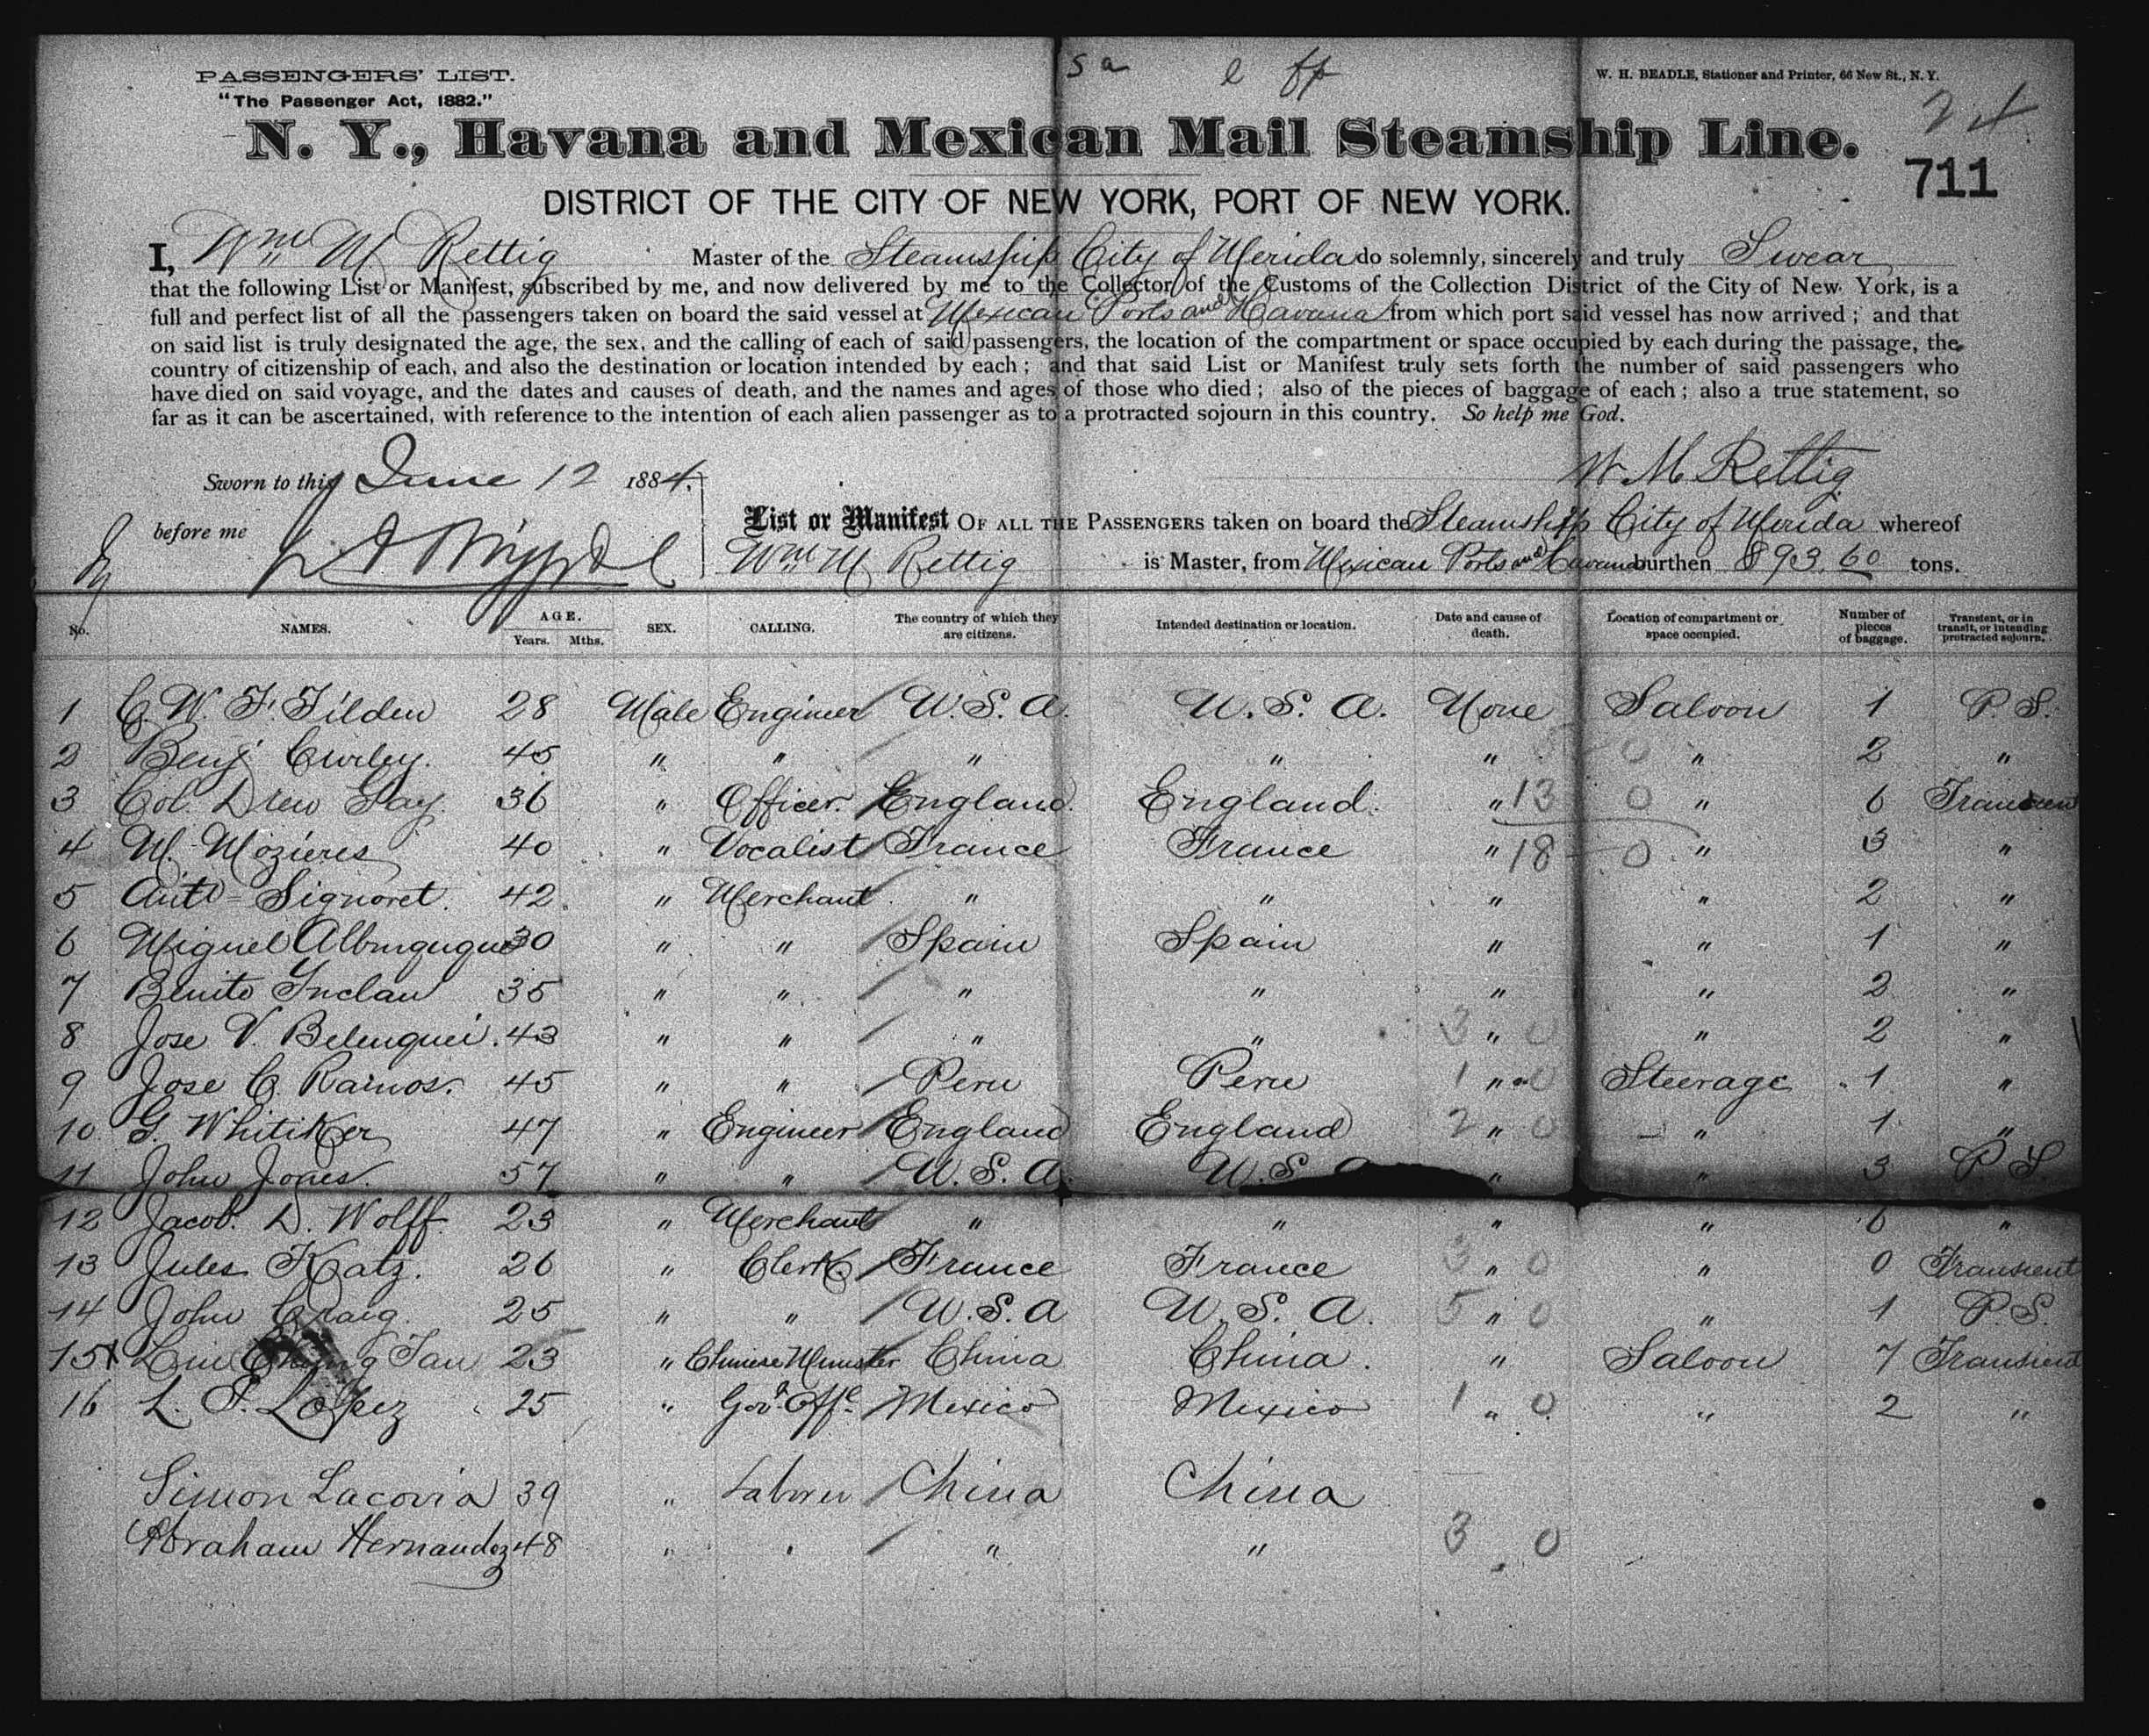 5 a e ff
PASSENGERS' LIST.
"The Passenger Act, 1882."
W. H. BEADLE, Stationer and Printer, 66 New St., N. Y.
N. Y., Havana and Mexican Mail Steamship Line.
711
DISTRICT OF THE CITY OF NEW YORK, PORT OF NEW YORK.
I, Wm M Rettig Master of the Steamship City of Merida do solemnly, sincerely and truly Swear
that the following List or Manifest, subscribed by me, and now delivered by me to the Collector of the Customs of the Collection District of the City of New York, is a
full and perfect list of all the passengers taken on board the said vessel at Mexican Ports and Havana from which port said vessel has now arrived; and that
on said list is truly designated the age, the sex, and the calling of each of said passengers, the location of the compartment or space occupied by each during the passage, the
country of citizenship of each, and also the destination or location intended by each; and that said List or Manifest truly sets forth the number of said passengers who
have died on said voyage, and the dates and causes of death, and the names and ages of those who died; also of the pieces of baggage of each; also a true statement, so
far as it can be ascertained, with reference to the intention of each alien passenger as to a protracted sojourn in this country. So help me God.
Sworn to this June 12 1884.
W M Rettig
before me
List or Manifest OF ALL THE PASSENGERS taken on board the Steamship City of Merida whereof
Wm M Rettig is Master, from Mexican Ports and Havana burthen 893.60 tons.
No. NAMES. AGE. Years. Mths. SEX. CALLING. The country of which they are citizens. Intended destination or location. Date and cause of death. Location of compartment or space occupied. Number of pieces of baggage. Transient, or in transit, or intending protracted sojourn.
1 C. W. F. Tilden 28 Male Engineer U.S.A. U.S.A. None Saloon 1 P.S.
2 Benj Curley. 45 " " " " " 0 " 2 "
3 Col. Drew Gay 36 " Officer England England " 13 0 " 6 Transient
4 M. Mozieres 40 " Vocalist France France " 18 0 " 3 "
5 Anto Signoret. 42 " Merchant " " " " 2 "
6 Miguel Alburquque 30 " " Spain Spain " " 1 "
7 Benito Inclan 35 " " " " " " 2 "
8 Jose V. Belenquei. 43 " " " " 3 " 0 " 2 "
9 Jose C. Ramos. 45 " " Peru Peru 1 " 0 Steerage 1 "
10 G. Whitiker 47 " Engineer England England 2 " 0 " 1 "
11 John Jones. 57 " " U.S.A. U.S.A " " 3 P.S.
12 Jacob. D. Wolff 23 " Merchant " " " " 6 "
13 Jules Katz. 26 " Clerk France France 3 " 0 " 0 Transient
14 John Craig. 25 " " U.S.A U.S.A. 5 " 0 " 1 P.S.
15 Lin Chung Tan 23 " Chinese Minister China China. " Saloon 7 Transient
16 L. P. Lopez 25 " Govt Offl Mexico Mexico 1 " 0 " 2 "
Simon Lacovia 39 " Laborer China China
Abraham Hernandez 48 " " " " 3 " 0